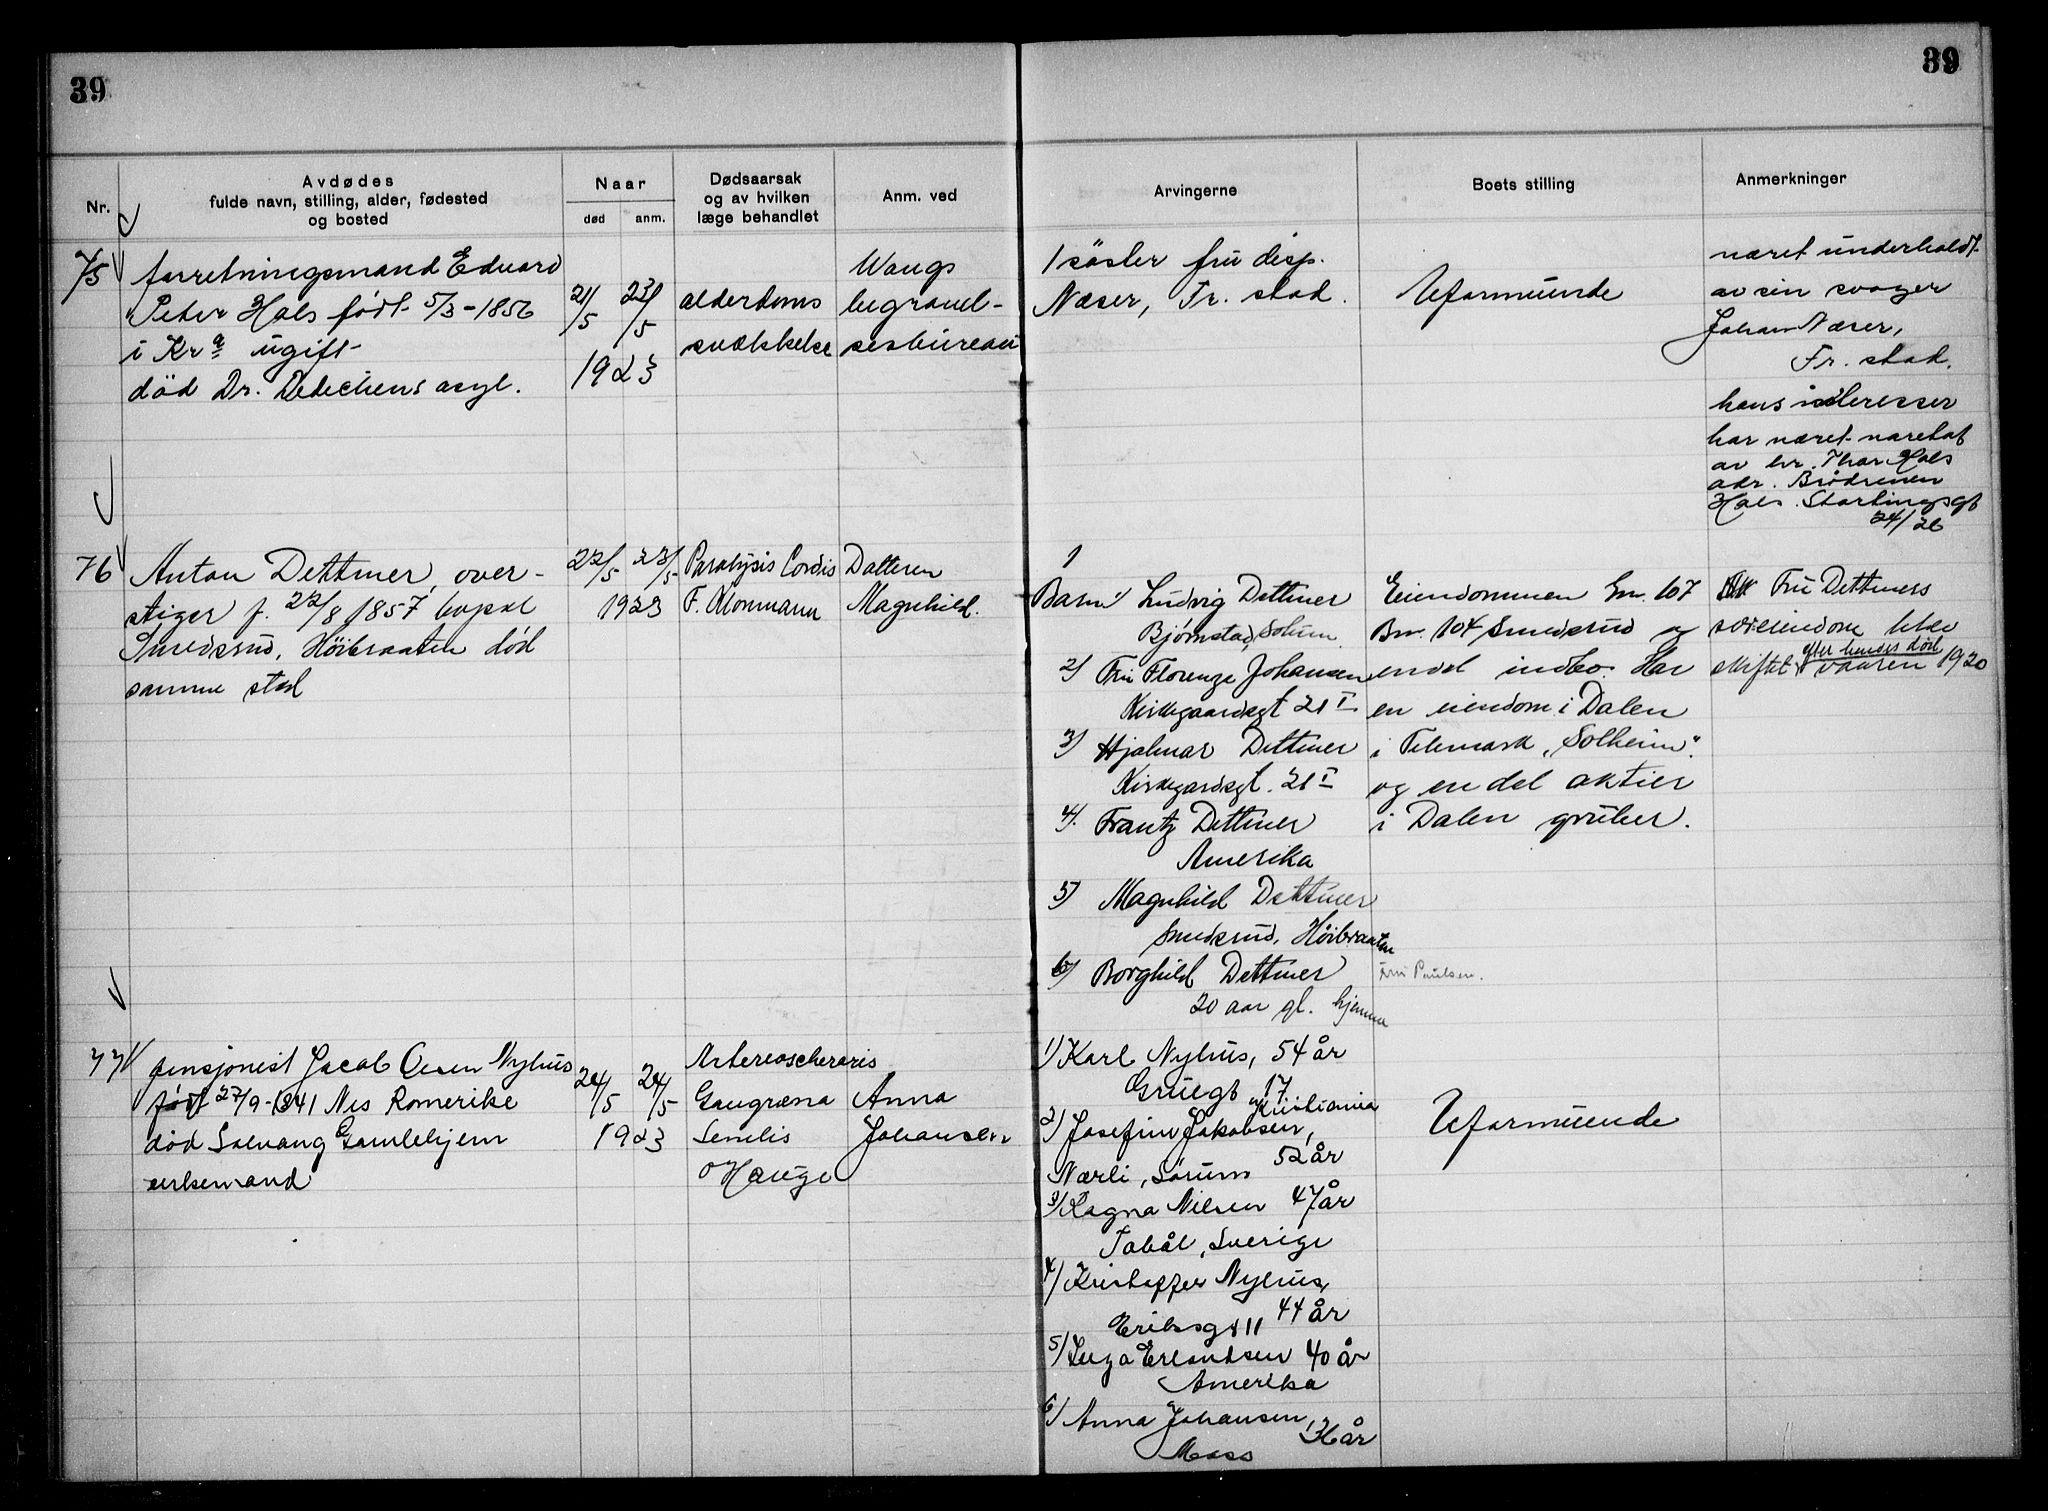 39
39
Nr.
Avdødes
fulde navn, stilling, alder, fødested
og bosted
Naar
død
anm.
Dødsaarsak
og av hvilken
læge behandlet
Anm. ved
Arvingerne
Boets stilling
Anmerkninger
75
forretningsmand Eduard
Peter Hals født 5/3-1856
i Kra ugift
død Dr. Dedechens asyl.
21/5 23/5
1923
alderdoms
svækkelse
Wangs
begravel-
sesbureau
1 søster fru disp.
Næser, Fr. stad.
Uformuende
været underholdt
av sin svoger
Johan Næser,
Fr. stad.
hans interesser
har været varetat
av hr. Thor Hals
adr. Brødrenen
Hals. Stortingsgt
24/26
76
Anton Dettmer, over-
stiger f. 22/8 1857 bopæl
Smedsrud, Höibraaten död
samme sted
22/5 23/5
1923
Paralysis Cordis
F. Klonmann
Datteren
Magnhild.
1
Barn 1) Ludvig Dettmer
Bjørnstad, Solum
2) Fru Florenze Johansen
Kirkegaardsgt 21 I
3) Hjalmar Dettmer
Kirkegardsgt. 21 I
4). Frantz Dettmer
Amerika
5) Magnhild Dettmer
Smedsrud, Höibraaten
6) Borghild Dettmer
20 aar gl. hjemme
Eiendommen Gn. 107
Bn. 104 Smedsrud og
endel indbo. Har
en eiendom i Dalen
i Telemark „Solheim".
og en del aktier
i Dalen gruber.
Fru Paulsen.
Fru Dettmers
særeiendom blev
efter hendes död
skiftet vaaren 1920
77
pensjonist Jacob Olsen Nyhus
født 27/9-1841 Nes Romerike
død Solvang Gamlehjem
enkemand
24/5 24/5
1923
Arterioscherosis
Gangræna
Senilis
Hauge
Anna
Johansen
1) Karl Nyhus, 54 år
Gruegt 17
Kristiania
2) Josefine Jakobsen,
52 år
Nærli, Sørum
3) Ragna Nilsen 47 år
Tobøl, Sverige
4) Kristoffer Nyhus,
44 år
Eriksgt 11
5) Luza Erlandsen 40 år
Amerika
6) Anna Johansen,
36 år
Moss
Uformuende